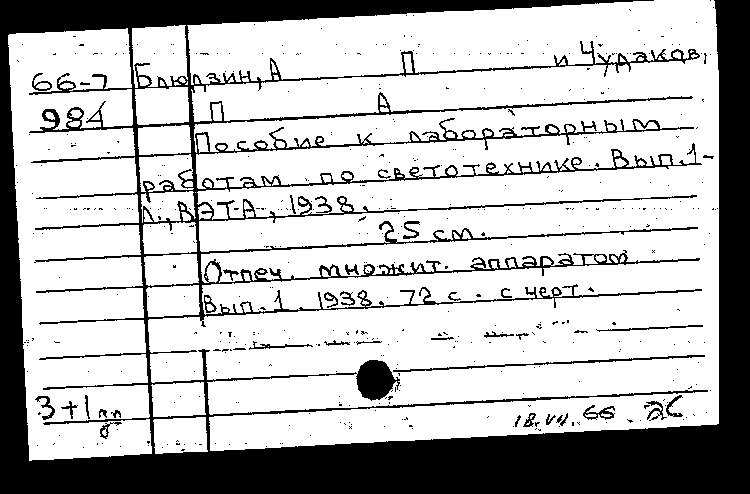 66-7 Блюдзин, А П и Чудаков,
984 П А
Пособие к лабораторным
работам по светотехнике. Вып. 1-
Л., ВЭТА, 1938.
25 см.
Отпеч. множит. аппаратом
Вып. 1. 1938. 72 с. с черт.
3+1
18.VII.66